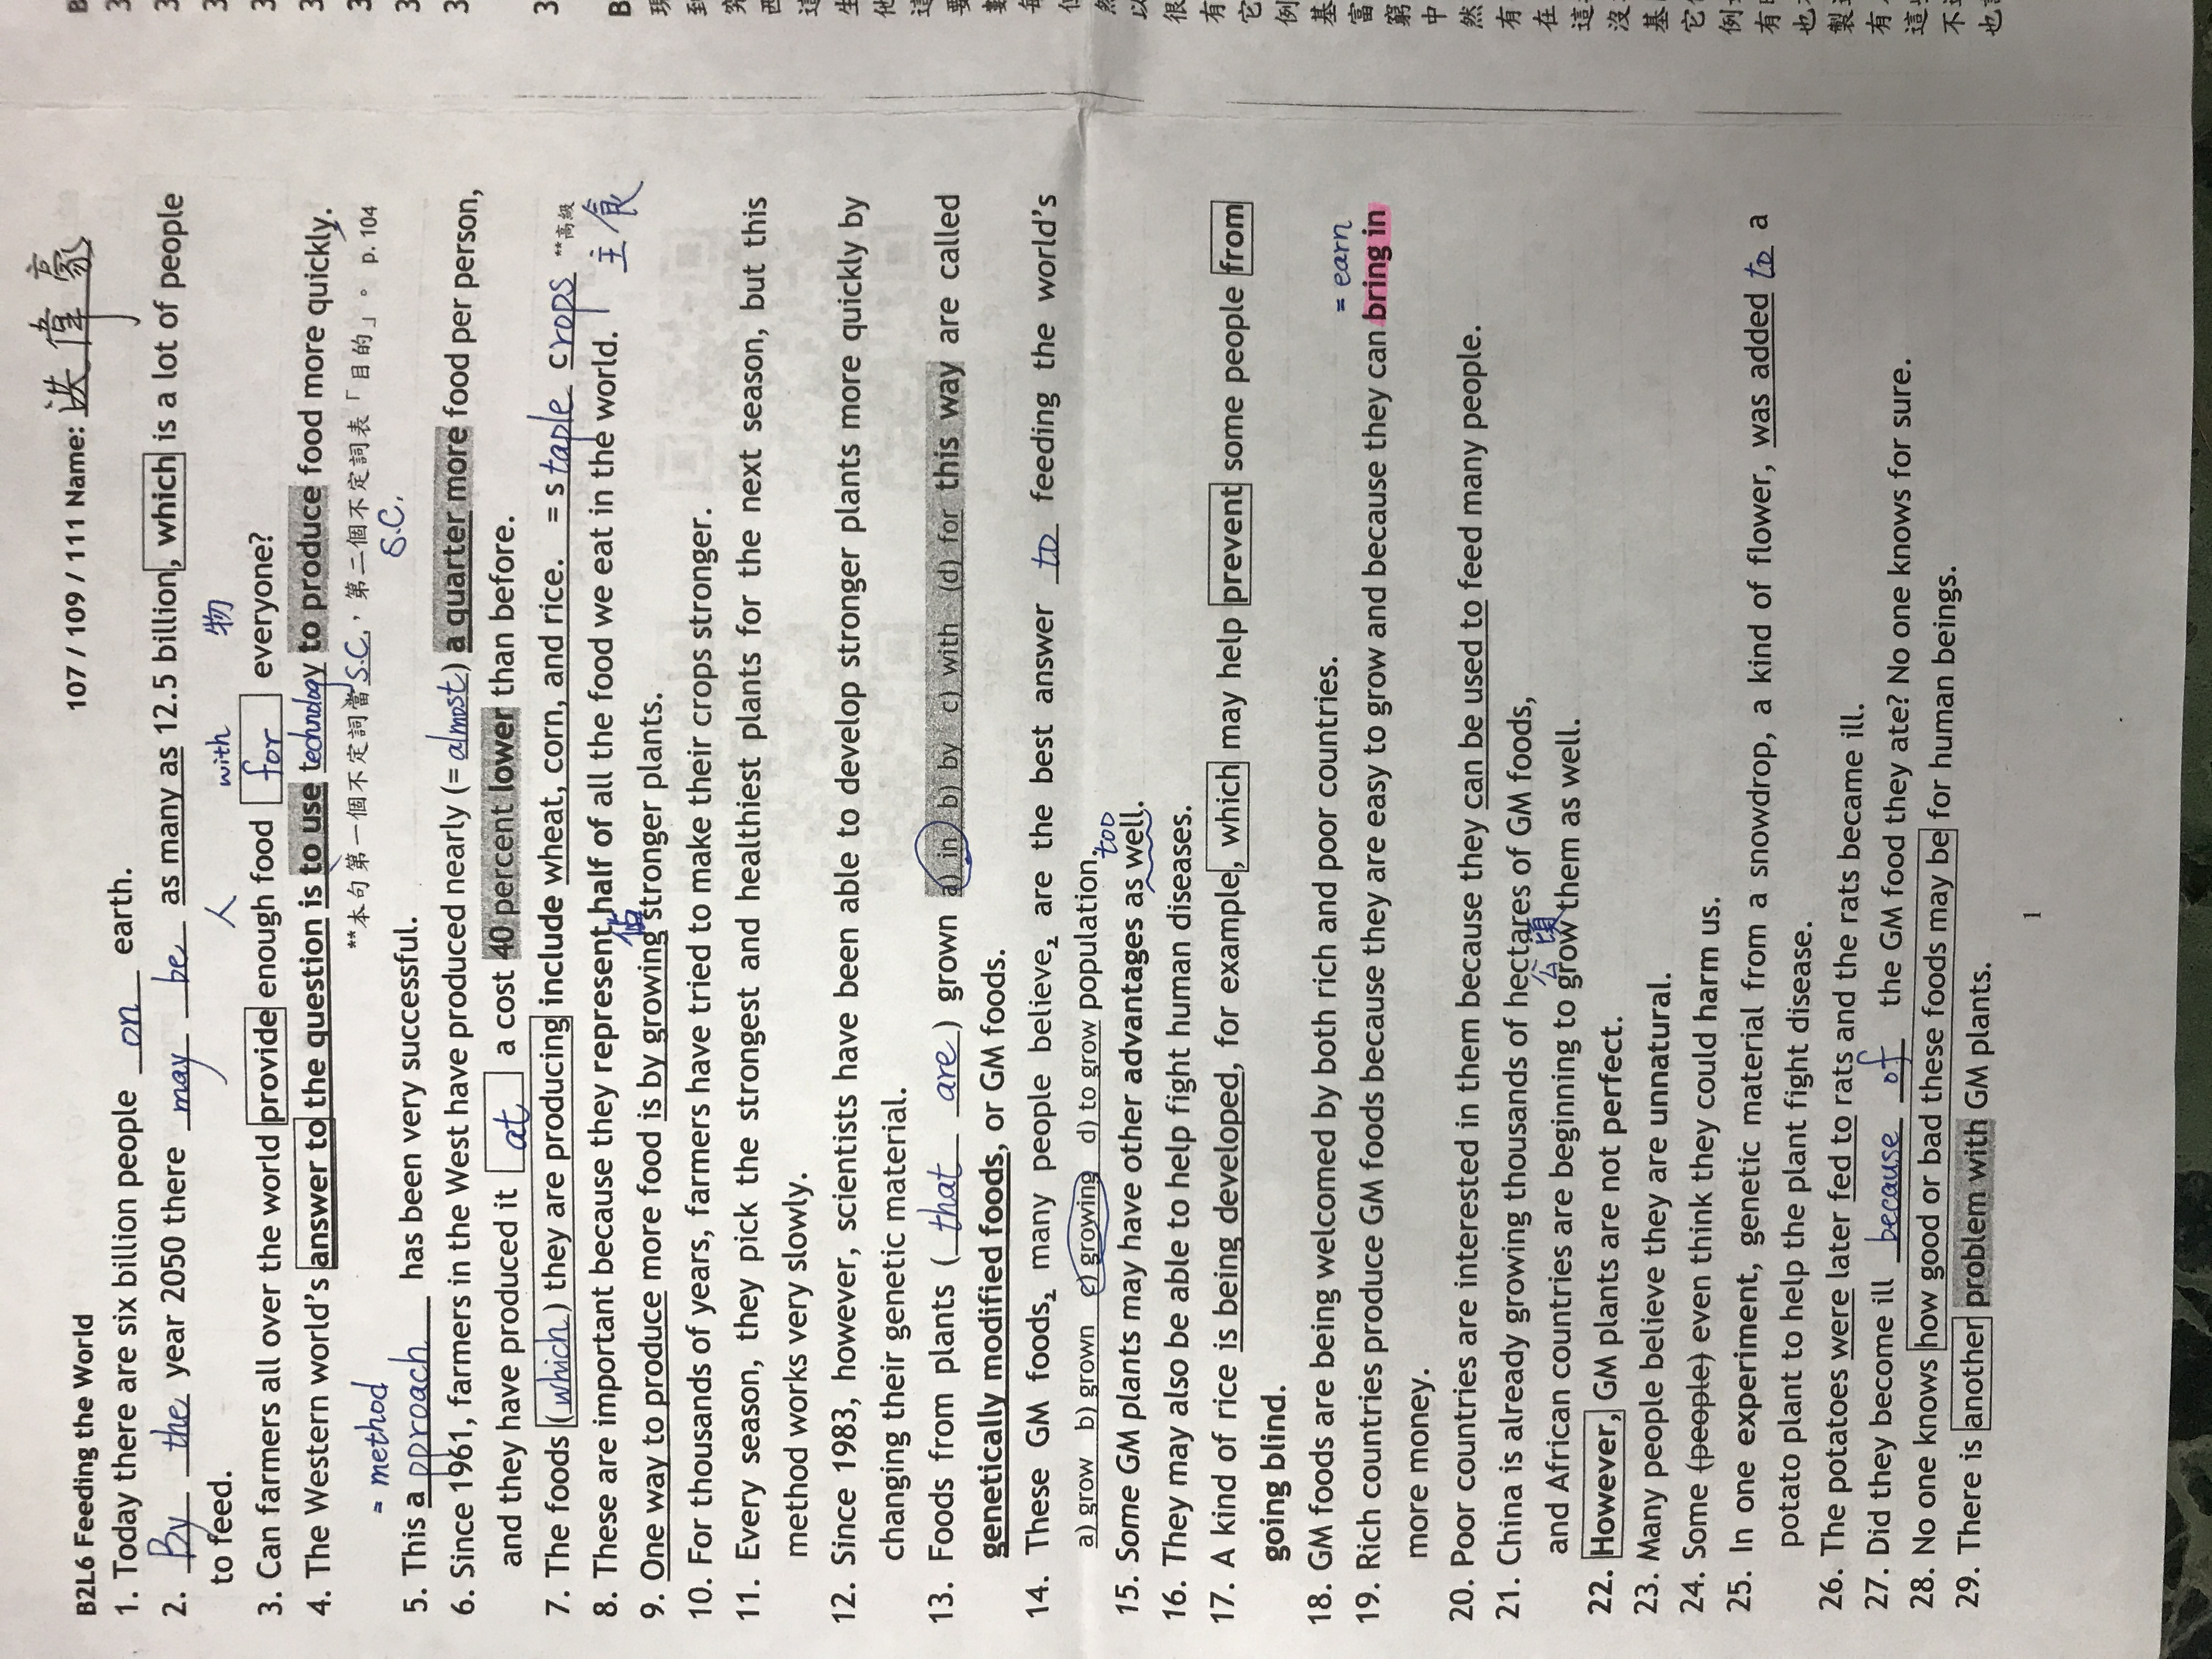 B2L6 Feeding the World 107 / 109 / 111 Name: 洪偉豪
1. Today there are six billion people on earth.
2. By the year 2050 there may be as many as 12.5 billion, which is a lot of people
to feed.
人 with 物
3. Can farmers all over the world provide enough food for everyone?
4. The Western world's answer to the question is to use technology to produce food more quickly.
**本句第一個不定詞當S.C.，第二個不定詞表「目的」。 p. 104
= method S.C.
5. This approach has been very successful.
6. Since 1961, farmers in the West have produced nearly (= almost) a quarter more food per person,
and they have produced it at a cost 40 percent lower than before.
7. The foods (which) they are producing include wheat, corn, and rice. = staple crops **高級
8. These are important because they represent half of all the food we eat in the world. 主食
佔
9. One way to produce more food is by growing stronger plants.
10. For thousands of years, farmers have tried to make their crops stronger.
11. Every season, they pick the strongest and healthiest plants for the next season, but this
method works very slowly.
12. Since 1983, however, scientists have been able to develop stronger plants more quickly by
changing their genetic material.
13. Foods from plants (that are) grown a) in b) by c) with (d) for this way are called
genetically modified foods, or GM foods.
14. These GM foods, many people believe, are the best answer to feeding the world's
a) grow b) grown c) growing d) to grow population.
too
15. Some GM plants may have other advantages as well.
16. They may also be able to help fight human diseases.
17. A kind of rice is being developed, for example, which may help prevent some people from
going blind.
18. GM foods are being welcomed by both rich and poor countries.
= earn
19. Rich countries produce GM foods because they are easy to grow and because they can bring in
more money.
20. Poor countries are interested in them because they can be used to feed many people.
21. China is already growing thousands of hectares of GM foods,
公頃
and African countries are beginning to grow them as well.
22. However, GM plants are not perfect.
23. Many people believe they are unnatural.
24. Some (people) even think they could harm us.
25. In one experiment, genetic material from a snowdrop, a kind of flower, was added to a
potato plant to help the plant fight disease.
26. The potatoes were later fed to rats and the rats became ill.
27. Did they become ill because of the GM food they ate? No one knows for sure.
28. No one knows how good or bad these foods may be for human beings.
29. There is another problem with GM plants.
1